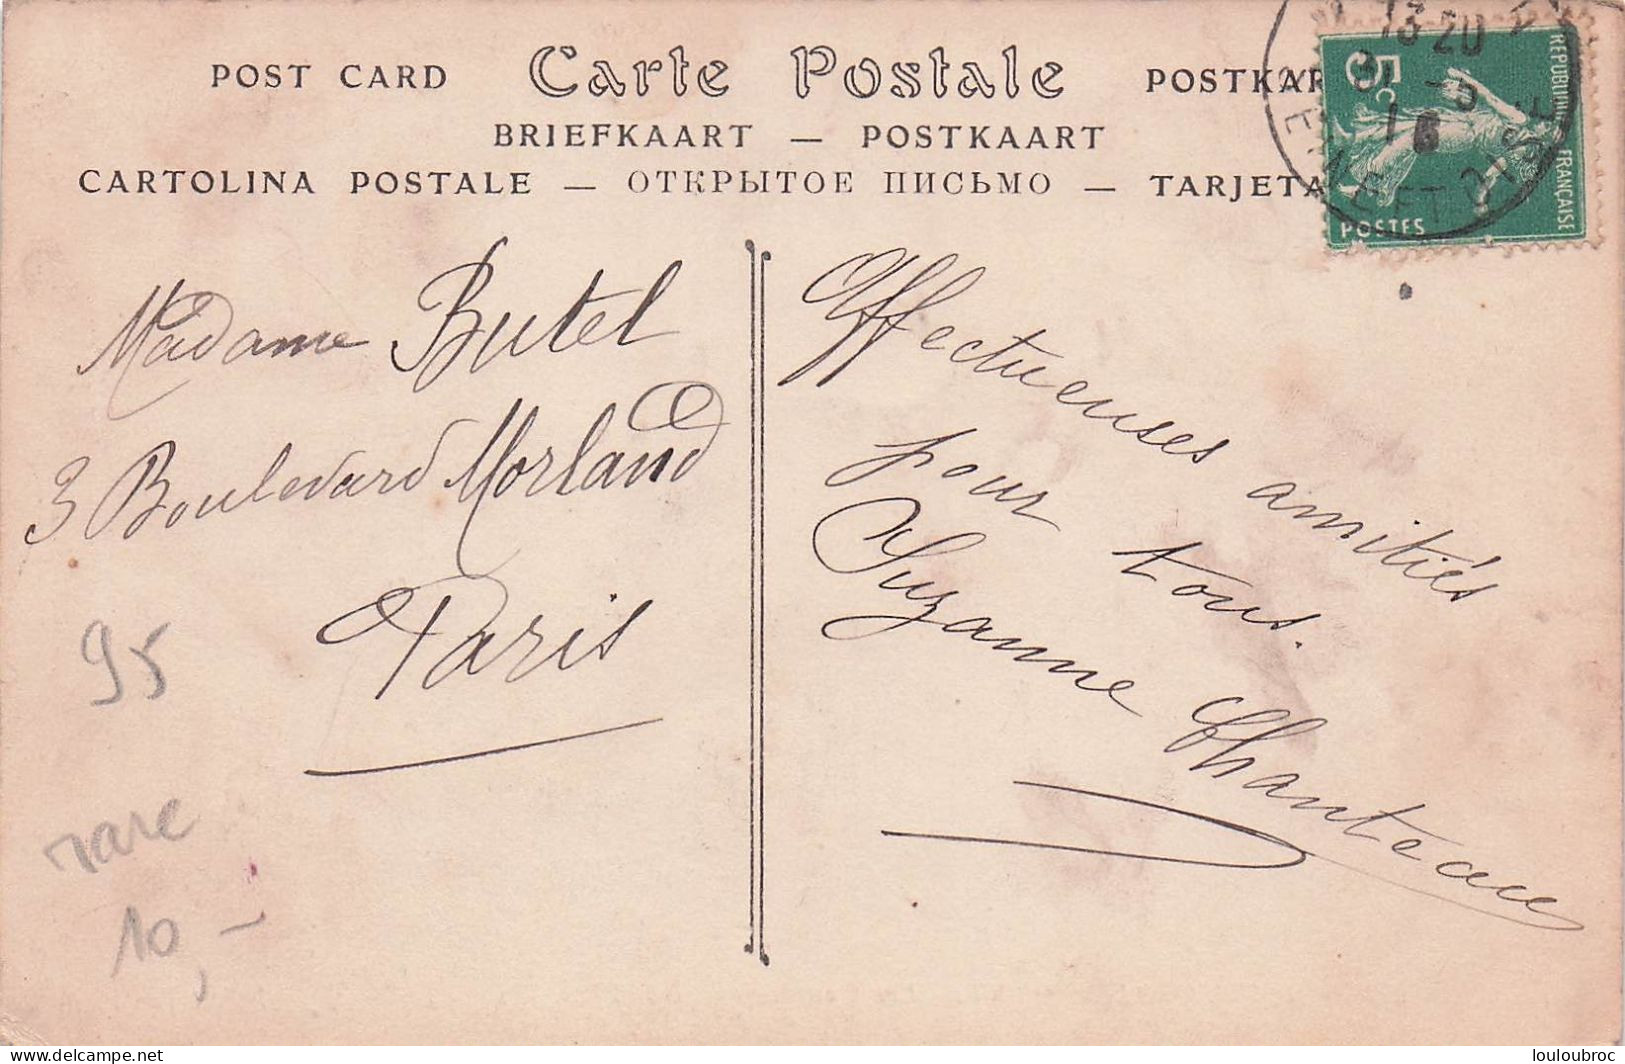 POST CARD Carte Postale POSTKAR
BRIEFKAART — POSTKAART
CARTOLINA POSTALE — ОТКРЫТОЕ ПИСЬМО — TARJETA
5c
RÉPUBLIQUE FRANÇAISE
POSTES
13 20
SEINE ET OISE
Madame Butel
3 Boulevard Morland
Paris
95
rare
10,-
Affectueuses amitiés
pour tous.
Suzanne Chanteau
delcampe.net
louloubroc